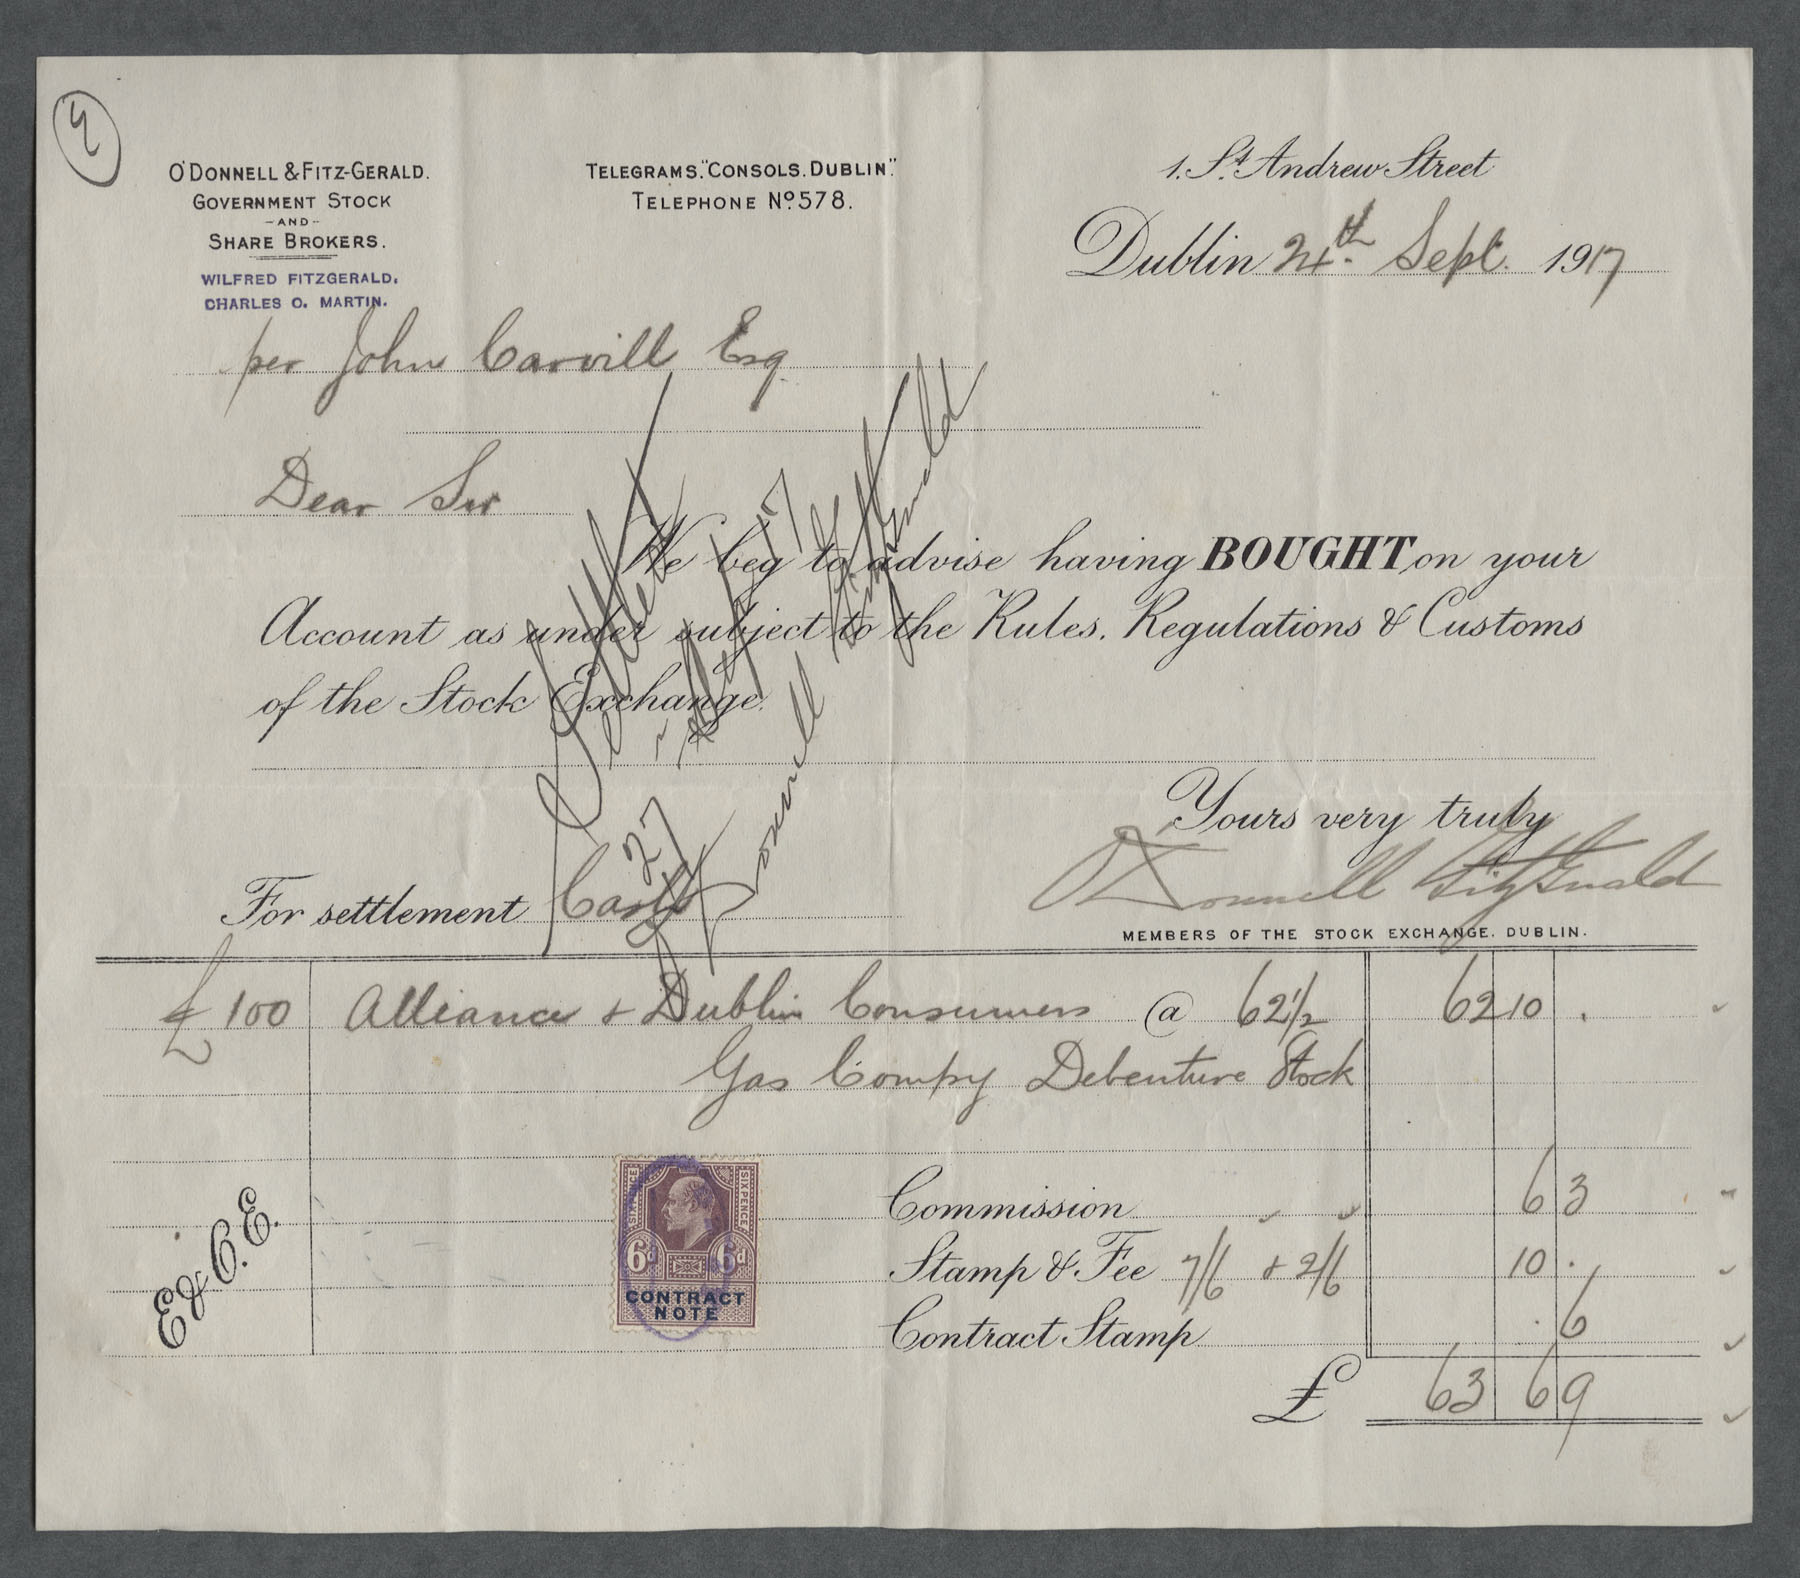 O'DONNELL & FITZ-GERALD.
GOVERNMENT STOCK
-AND-
SHARE BROKERS.
WILFRED FITZGERALD.
CHARLES O. MARTIN.
TELEGRAMS. "CONSOLS. DUBLIN".
TELEPHONE No. 578.
1. St. Andrew Street
Dublin 24th. Sept. 1917
per John Carvill Esq.
Dear Sir
We beg to advise having BOUGHT on your
Account as under subject to the Rules, Regulations & Customs
of the Stock Exchange.
Yours very truly
O'Donnell FitzGerald
MEMBERS OF THE STOCK EXCHANGE. DUBLIN.
For settlement Cash
£100 Alliance & Dublin Consumers @ 62½ 62 10 .
Gas Compy Debenture Stock
Commission 6 3
Stamp & Fee 7/6 & 2/6 10 .
Contract Stamp . 6
£ 63 6 9
E. & O. E.
SIXPENCE
SIXPENCE
6d 6d
CONTRACT
NOTE
O'Donnell FitzGerald